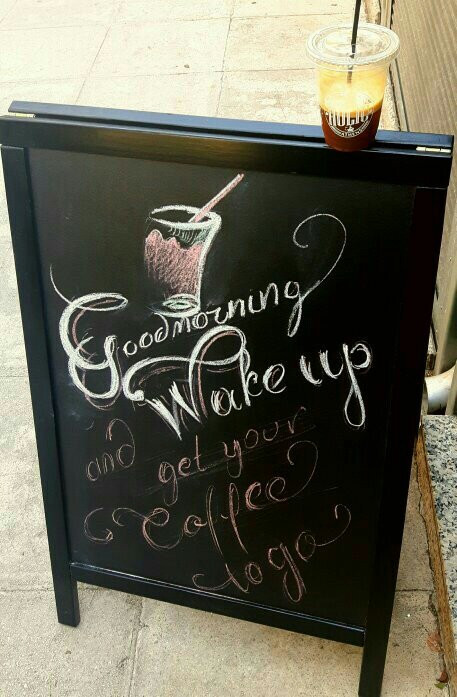 Goodmorning
Wake up
and get your
Coffee
to go